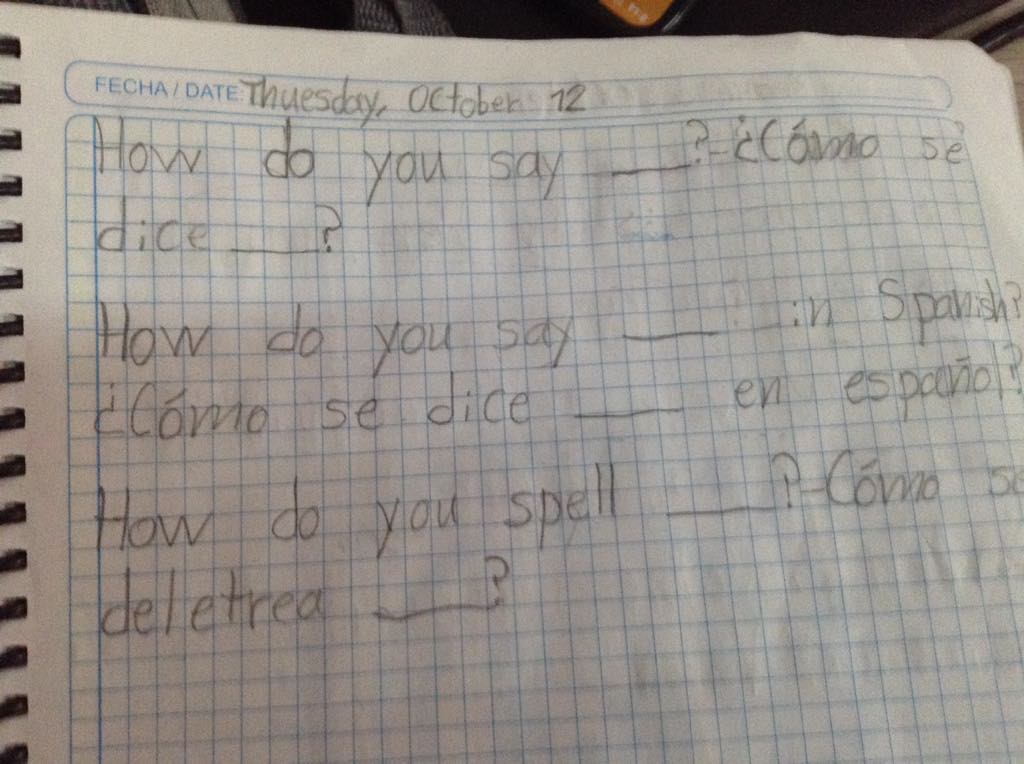 FECHA / DATE Thuesday, October 12
How do you say ___?-¿Cómo se
dice ___?
How do you say ___ in Spanish?
¿Cómo se dice ___ en español?
How do you spell ___?-Cómo se
deletrea ___?